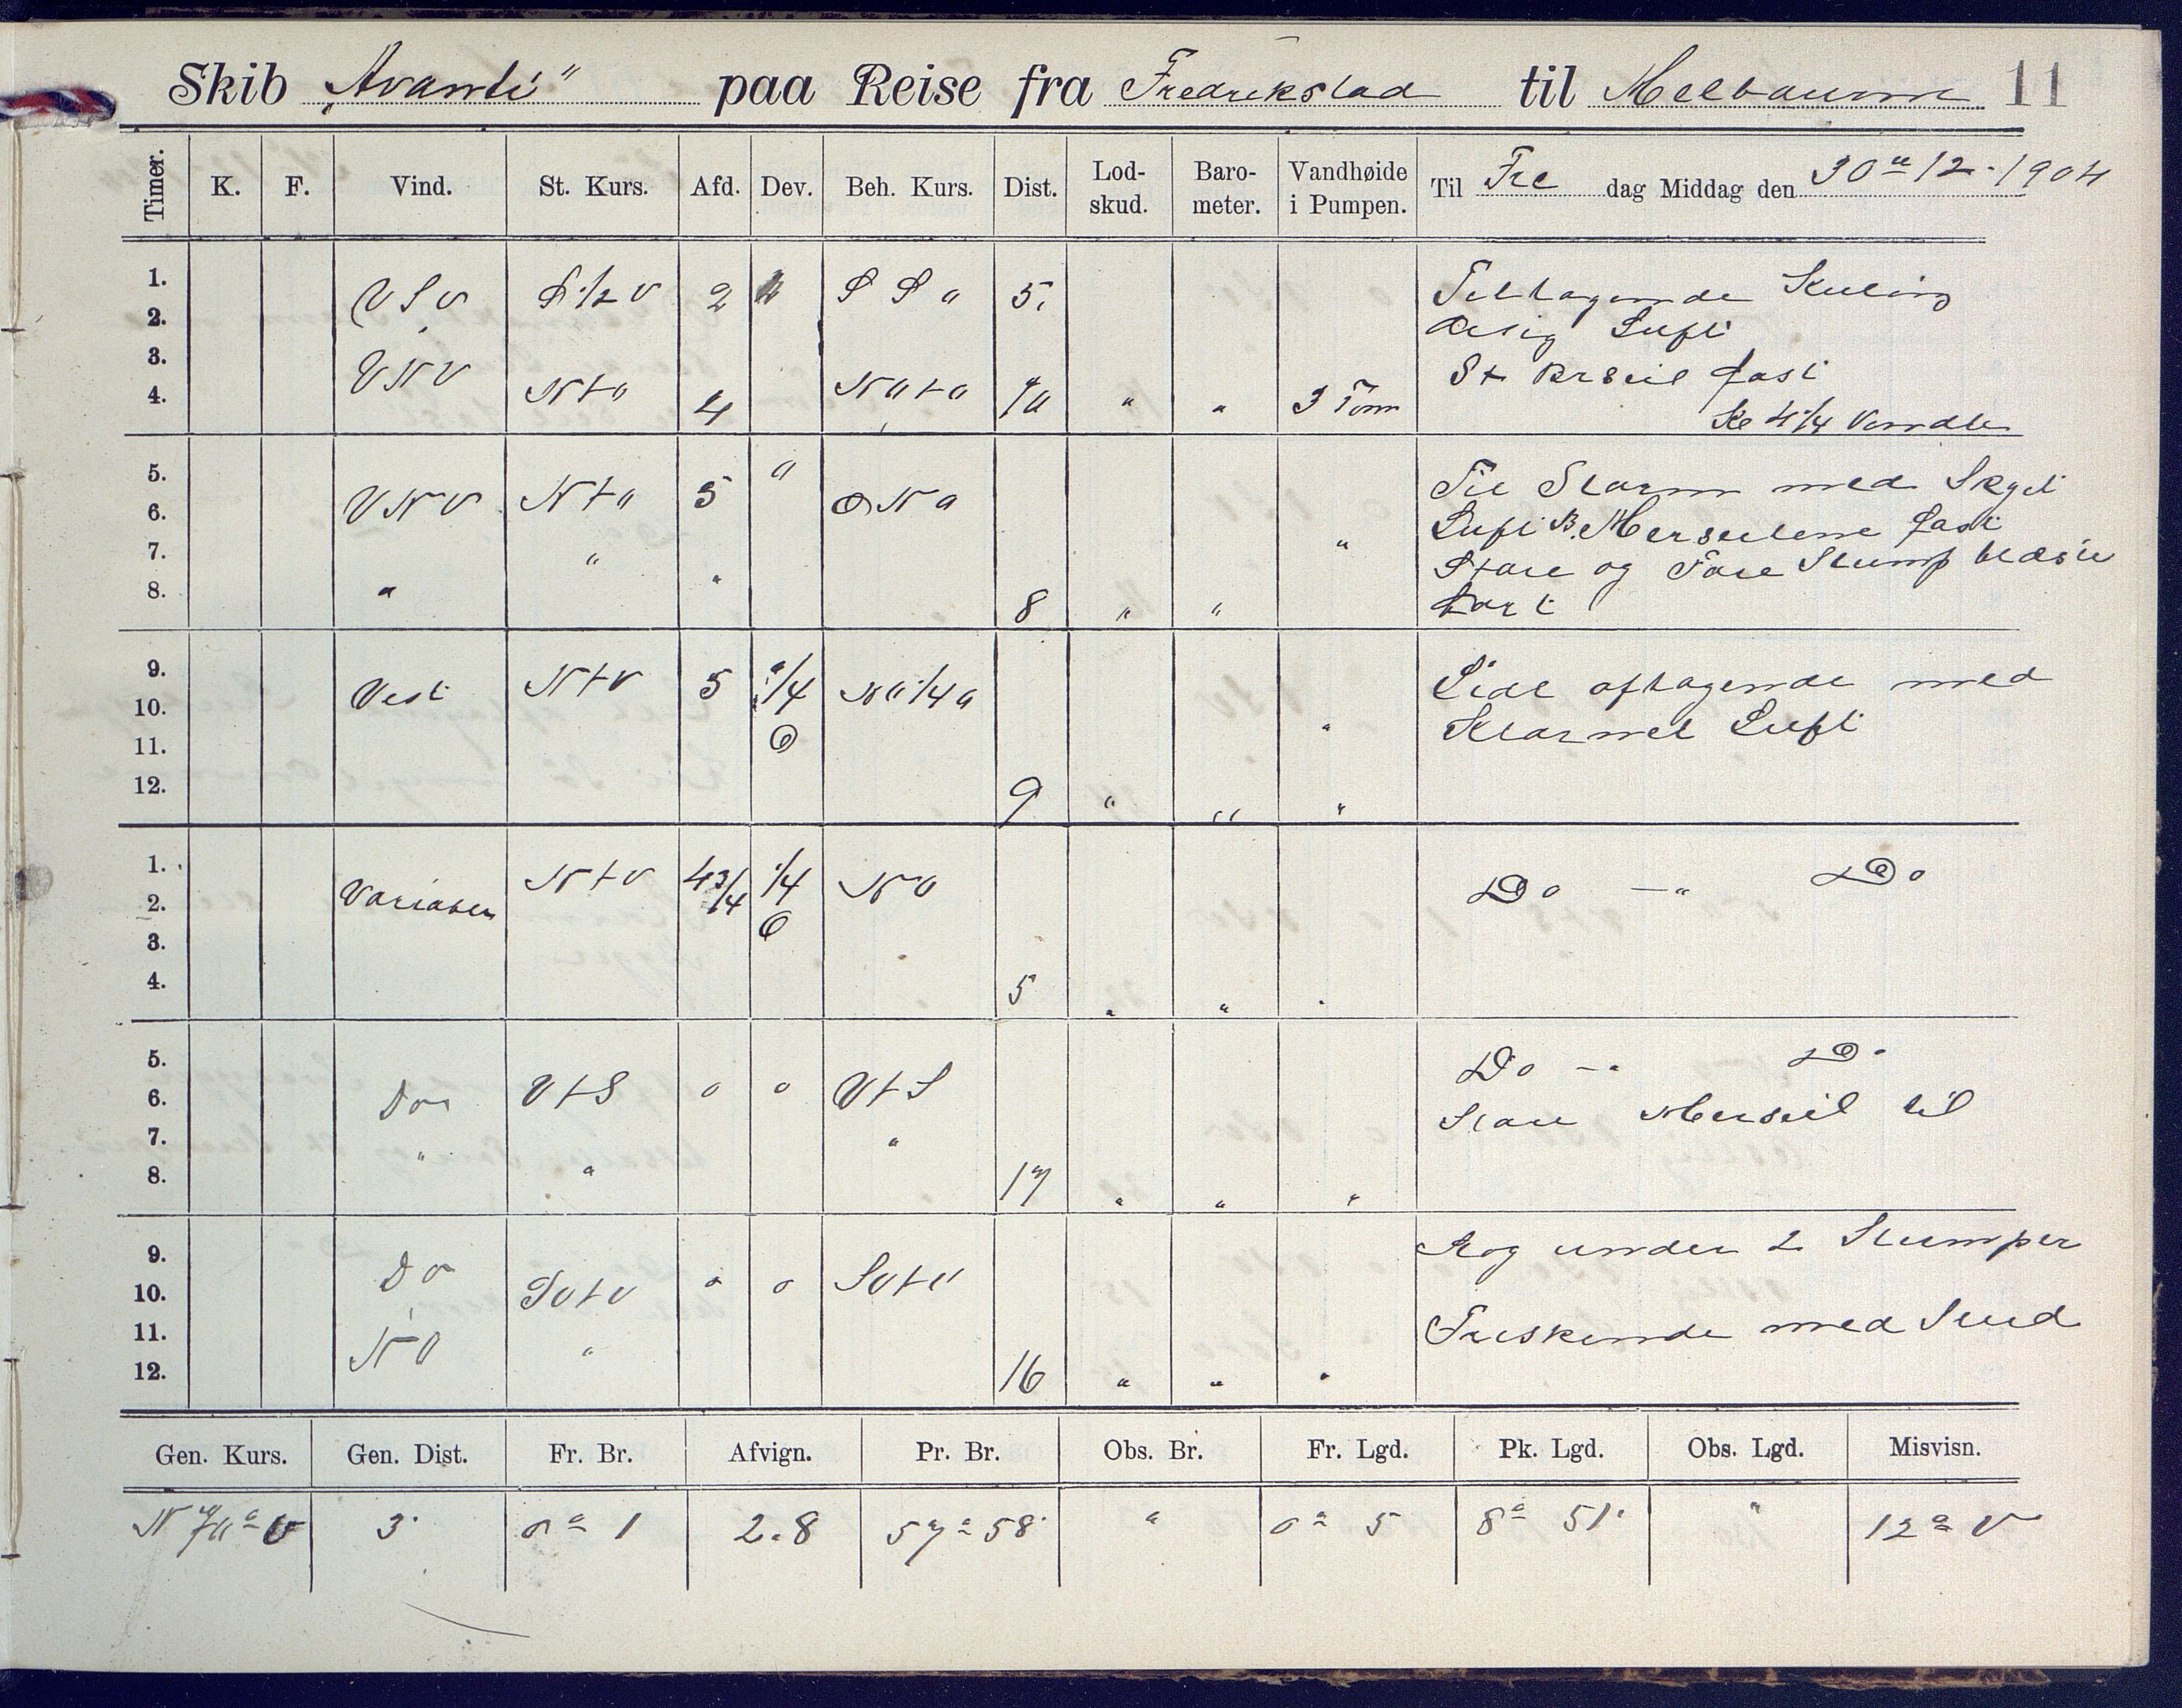 Skib „Avanti“ paa Reise fra Fredrikstad til Melbourne 11
Timer. K. F. Vind. St. Kurs. Afd. Dev. Beh. Kurs. Dist. Lod-skud. Baro-meter. Vandhøide i Pumpen. Til Fre dag Middag den 30te 12. 1904
1. VSV S 1/2 V 2 SSO 5. Tiltagende Kuling
2. Disig Luft
3. VNV St Brseil fast
4. NtO 4 NOtO 10 " " 3 Tom Kl 4 1/4 Vendte
5. VNV NtO 5 " ONO Til Storm med Skyet
6. Luft B. Merseilene fast
7. " " " Store og Fore Stump blæste
8. 8 " " bort
9. Vest NtV 5 1/4 NO 1/4 O Lidt aftagende med
10. O " Klarnet Luft
11.
12. 9 " " "
1. Variabel NtV 4 3/4 1/4 NO Do — " Do
2. O
3.
4. 5 " " "
5. Do — " Do
6. Do VtS o o VtS Store Merseil til
7. " " "
8. 17 " " "
9. Laag under 2 Stumper
10. Do SVtV o o SVtV
11. NO " Friskende med Sned
12. 16 " " "
Gen. Kurs. Gen. Dist. Fr. Br. Afvign. Pr. Br. Obs. Br. Fr. Lgd. Pk. Lgd. Obs. Lgd. Misvisn.
N 70° V 3' 0° 1 2.8 57° 58' " 0° 5 8° 51' " 12° V